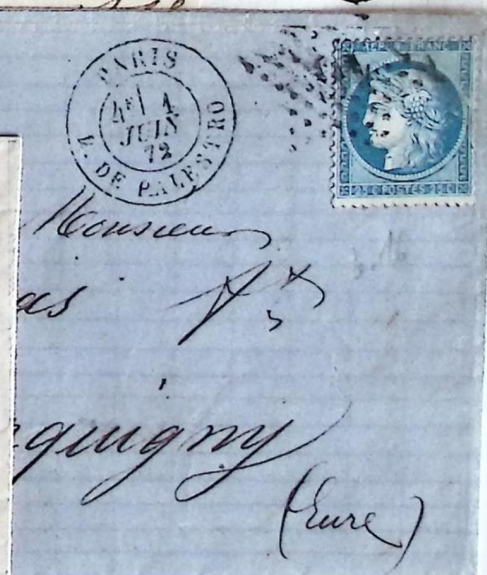 PARIS
4E/ 4
JUIN
72
R. DE PALESTRO
REPUB. FRANC.
25 C POSTES 25 C
Monsieur
as
quigny
(Eure)